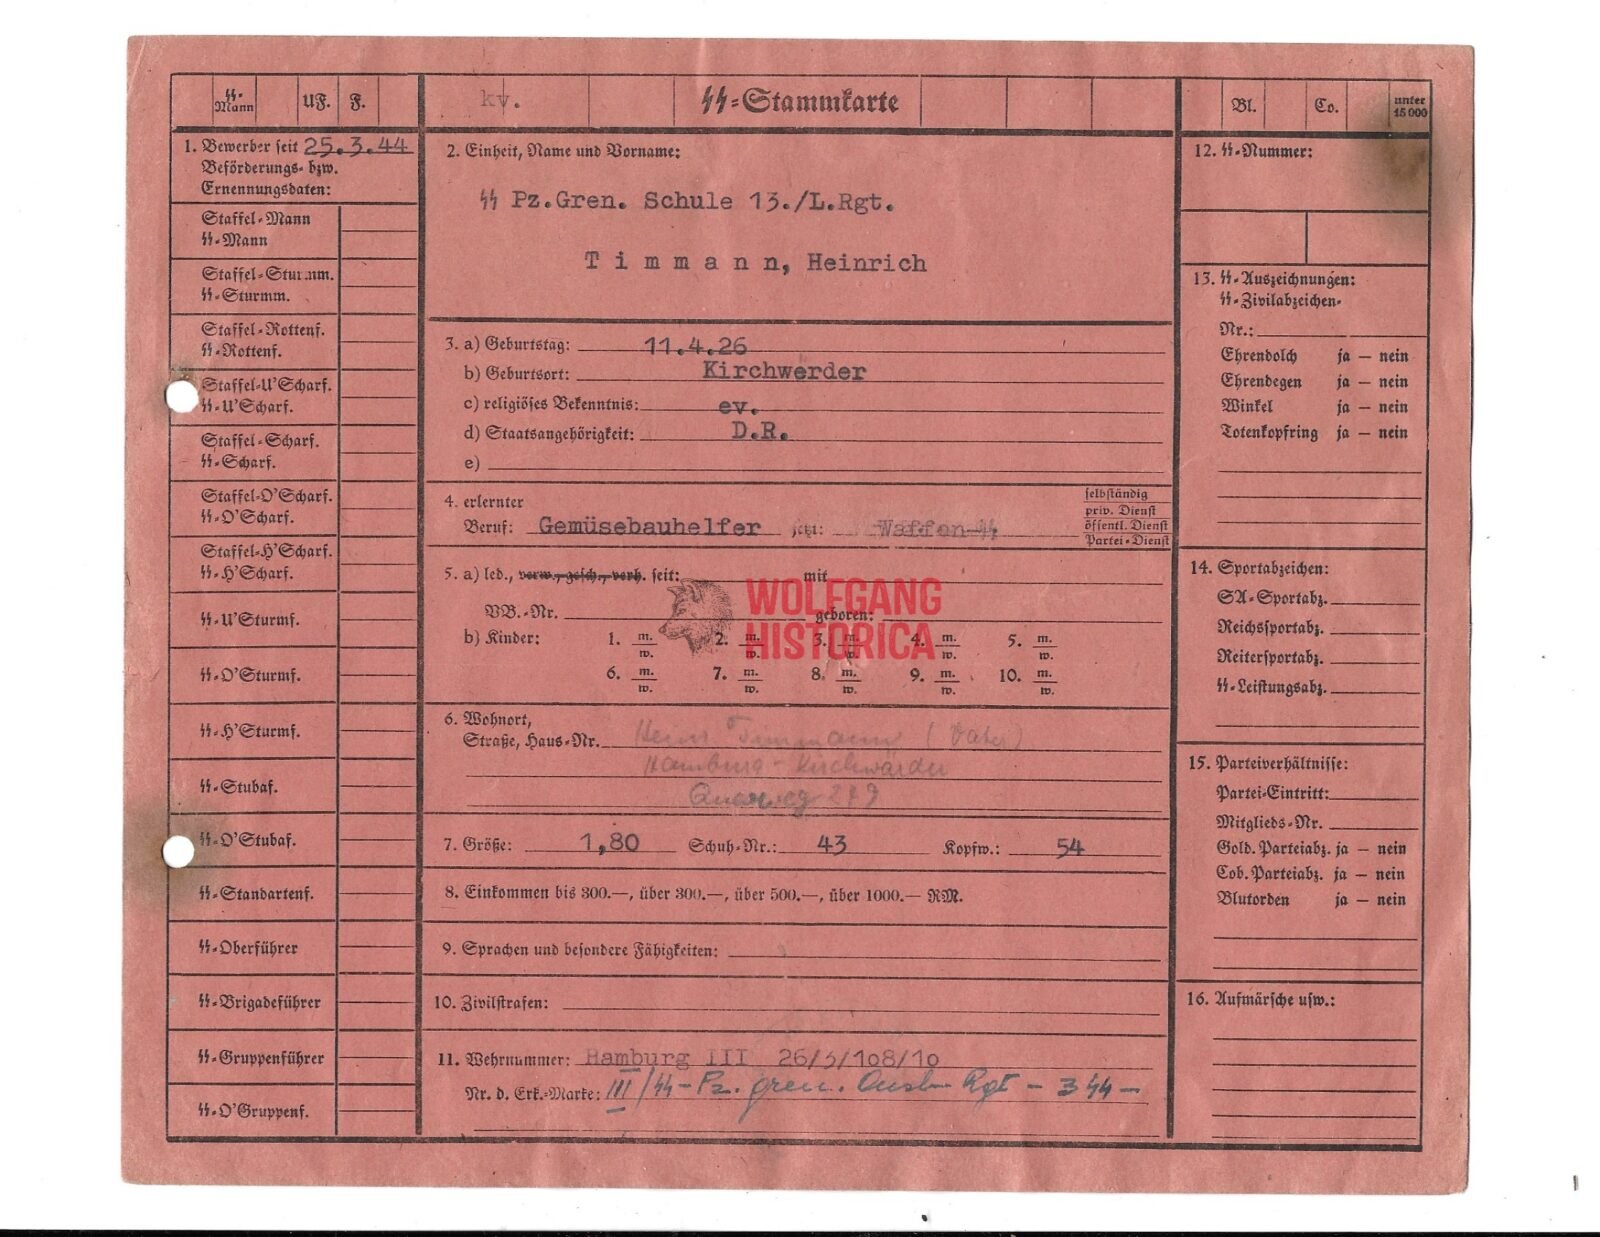 SS-Mann UF. F.
kv. SS-Stammkarte
Bl. Co. unter 15000
1. Bewerber seit 25.3.44
Beförderungs- bzw.
Ernennungsdaten:
Staffel-Mann
SS-Mann
Staffel-Sturmm.
SS-Sturmm.
Staffel-Rottenf.
SS-Rottenf.
Staffel-U'Scharf.
SS-U'Scharf.
Staffel-Scharf.
SS-Scharf.
Staffel-O'Scharf.
SS-O'Scharf.
Staffel-H'Scharf.
SS-H'Scharf.
SS-U'Sturmf.
SS-O'Sturmf.
SS-H'Sturmf.
SS-Stubaf.
SS-O'Stubaf.
SS-Standartenf.
SS-Oberführer
SS-Brigadeführer
SS-Gruppenführer
SS-O'Gruppenf.
2. Einheit, Name und Vorname:
SS Pz.Gren. Schule 13./L.Rgt.
Timmann, Heinrich
3. a) Geburtstag: 11.4.26
b) Geburtsort: Kirchwerder
c) religiöses Bekenntnis: ev.
d) Staatsangehörigkeit: D.R.
e)
4. erlernter
Beruf: Gemüsebauhelfer jetzt: Waffen-SS
selbständig
priv. Dienst
öffentl. Dienst
Partei-Dienst
5. a) led., verw., gesch., verh. seit: mit
VB.-Nr. geboren:
b) Kinder: 1. m. w. 2. m. w. 3. m. w. 4. m. w. 5. m. w.
6. m. w. 7. m. w. 8. m. w. 9. m. w. 10. m. w.
WOLFGANG
HISTORICA
6. Wohnort,
Straße, Haus-Nr. Timmann (Vater)
Hamburg-Kirchwärder
279
7. Größe: 1,80 Schuh-Nr.: 43 Kopfw.: 54
8. Einkommen bis 300.—, über 300.—, über 500.—, über 1000.— RM.
9. Sprachen und besondere Fähigkeiten:
10. Zivilstrafen:
11. Wehrnummer: Hamburg III 26/3/108/10
Nr. d. Erk.-Marke: III/SS-Pz. gren. Ausb. Rgt - 3 44 -
12. SS-Nummer:
13. SS-Auszeichnungen:
SS-Zivilabzeichen-
Nr.:
Ehrendolch ja — nein
Ehrendegen ja — nein
Winkel ja — nein
Totenkopfring ja — nein
14. Sportabzeichen:
SA-Sportabz.
Reichssportabz.
Reitersportabz.
SS-Leistungsabz.
15. Parteiverhältnisse:
Partei-Eintritt:
Mitglieds-Nr.
Gold. Parteiabz. ja — nein
Cob. Parteiabz. ja — nein
Blutorden ja — nein
16. Aufmärsche usw.: